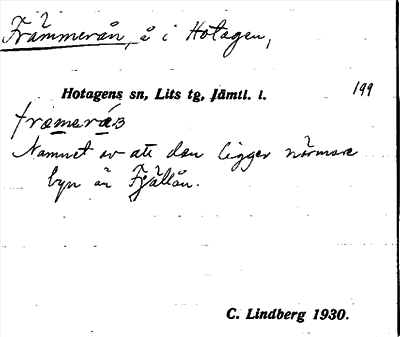 Främmerån, å i Hotagen,
Hotagens sn, Lits tg, Jämtl. l.
199
Namnet av att den ligger närmare
byn än Fjällån.
C. Lindberg 1930.